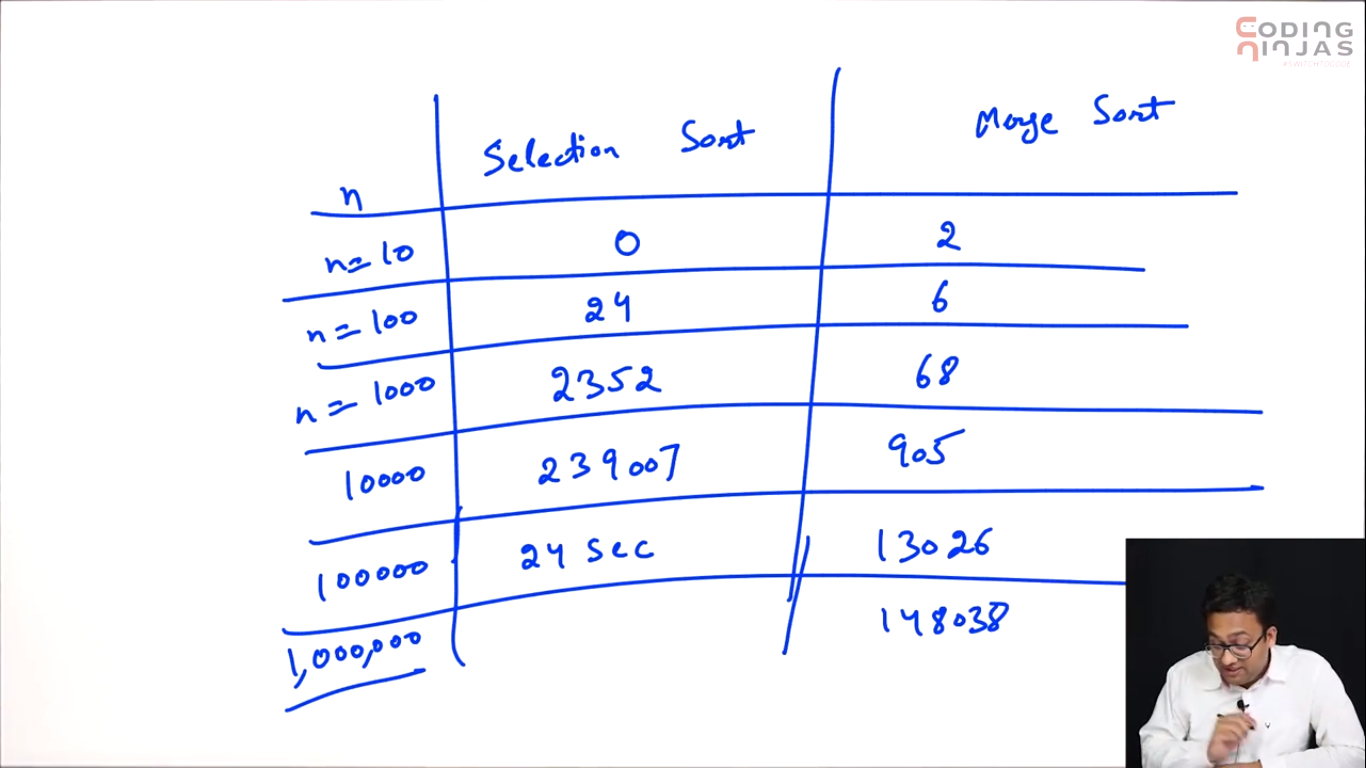 CODING
NINJAS
#SWITCHTOCODE
n Selection Sort Merge Sort
n=10 0 2
n=100 24 6
n=1000 2352 68
10000 239007 905
100000 24 sec 13026
1,000,000 148038